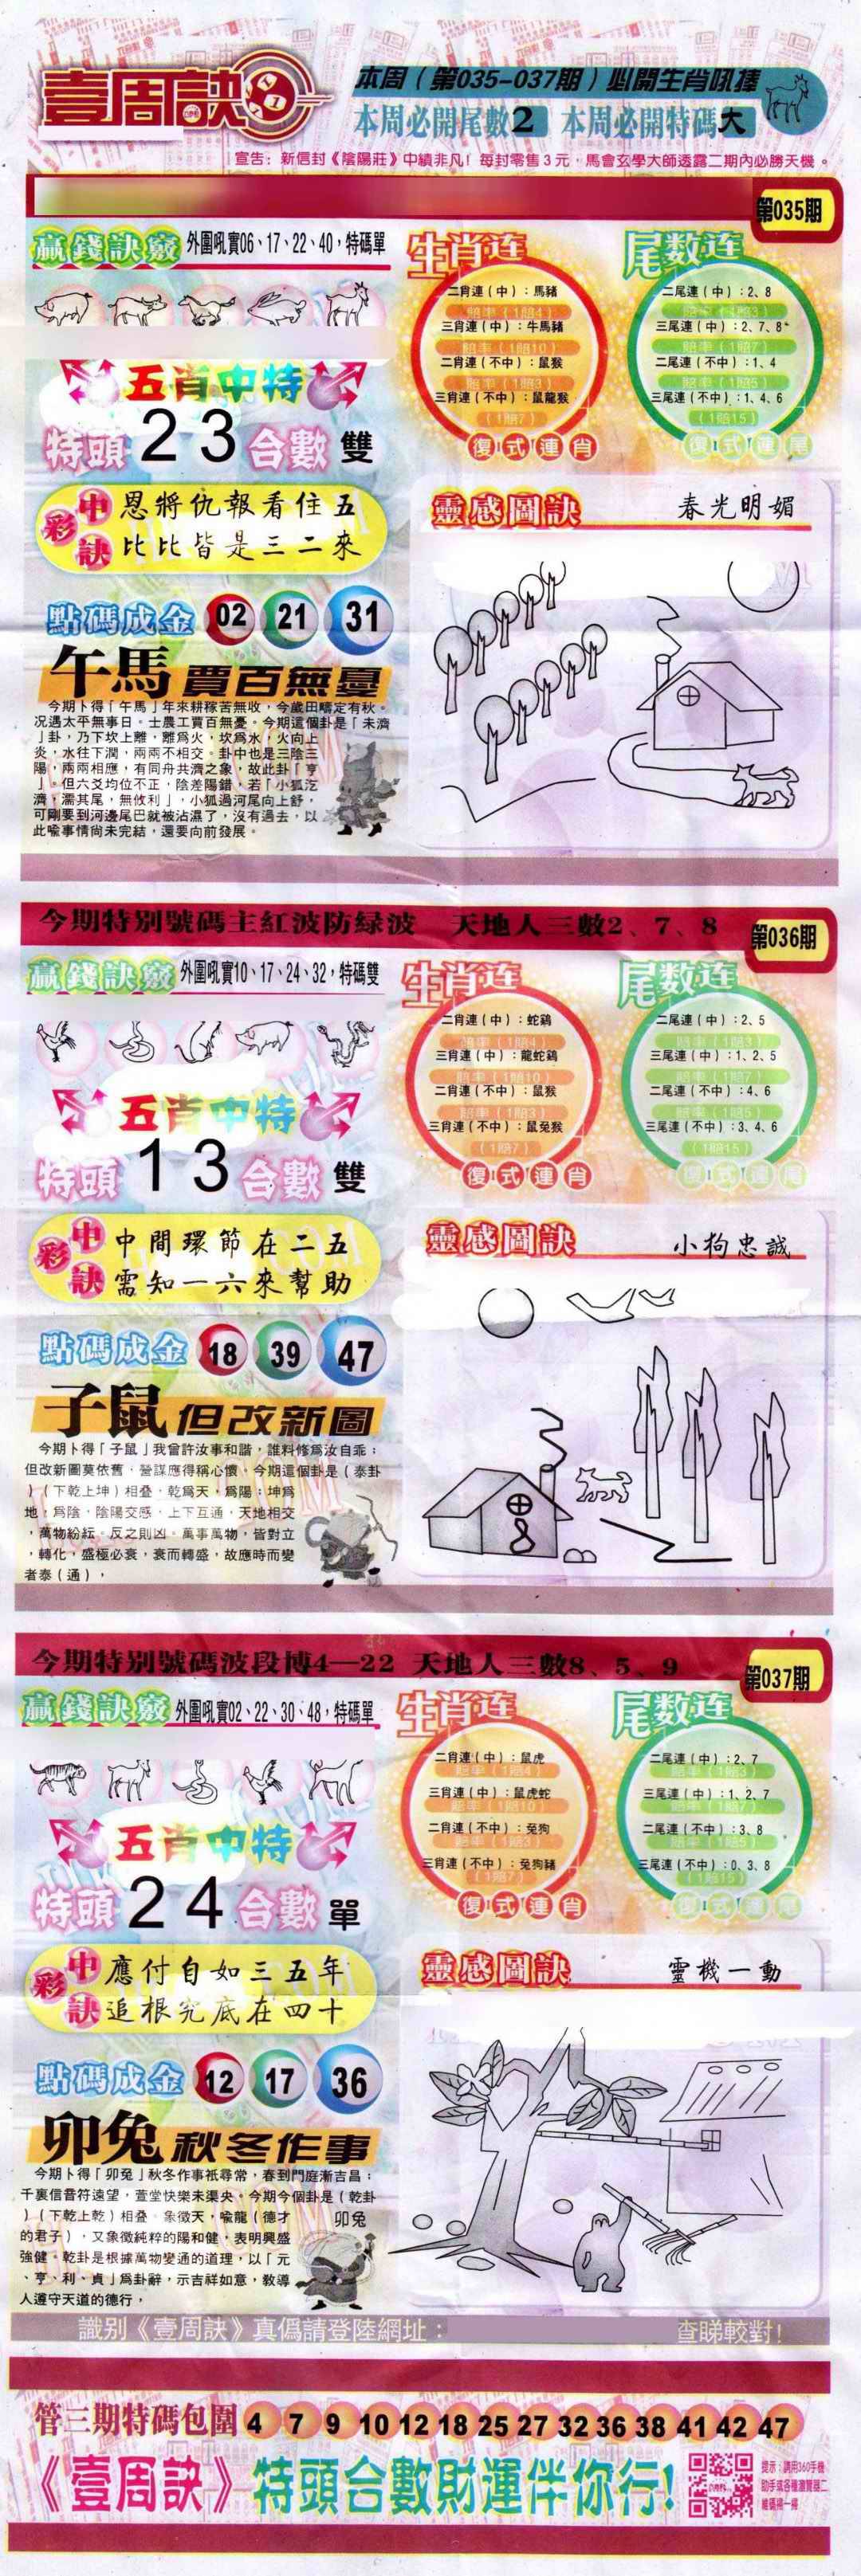 壹周訣
本周（第035-037期）必開生肖吼搥
本周必開尾數2 本周必開特碼大
宣告：新信封《陰陽莊》中績非凡！每封零售3元，馬會玄學大師透露二期內必勝天機。
第035期
贏錢訣竅 外圍吼實06、17、22、40，特碼單
五肖中特
特頭 2 3 合數 雙
中彩訣
恩將仇報看住五
比比皆是三二來
點碼成金 02 21 31
午馬 賈百無憂
今期卜得「午馬」年來耕稼苦無收，今歲田疇定有秋。
况遇太平無事日。士農工賈百無憂。今期這個卦是「未濟
」卦，乃下坎上離，離爲火，坎爲水，火向上
炎，水往下潤，兩兩不相交。卦中也是三陰三
陽，兩兩相應，有同舟共濟之象，故此卦「亨
」。但六爻均位不正，陰差陽錯，若「小狐汔
濟，濡其尾，無攸利」，小狐過河尾向上舒，
可剛要到河邊尾巴就被沾濕了，沒有過去，以
此喻事情尚未完結，還要向前發展。
生肖连
二肖連（中）：馬豬
賠率（1賠4）
三肖連（中）：牛馬豬
賠率（1賠10）
二肖連（不中）：鼠猴
賠率（1賠3）
三肖連（不中）：鼠龍猴
（1賠7）
復式連肖
尾数连
二尾連（中）：2、8
賠率（1賠3）
三尾連（中）：2、7、8
賠率（1賠7）
二尾連（不中）：1、4
賠率（1賠5）
三尾連（不中）：1、4、6
（1賠15）
復式連尾
靈感圖訣 春光明媚
今期特別號碼主紅波防緑波 天地人三數2、7、8
第036期
贏錢訣竅 外圍吼實10、17、24、32，特碼雙
五肖中特
特頭 1 3 合數 雙
中彩訣
中間環節在二五
需知一六來幫助
點碼成金 18 39 47
子鼠 但改新圖
今期卜得「子鼠」我曾許汝事和諧，誰料修爲汝自乖；
但改新圖莫依舊，營謀應得稱心懷。今期這個卦是（泰卦
）（下乾上坤）相叠，乾爲天，爲陽；坤爲
地，爲陰，陰陽交感，上下互通，天地相交
，萬物紛紜。反之則凶。萬事萬物，皆對立
，轉化，盛極必衰，衰而轉盛，故應時而變
者泰（通），
生肖连
二肖連（中）：蛇鷄
賠率（1賠4）
三肖連（中）：龍蛇鷄
賠率（1賠10）
二肖連（不中）：鼠猴
賠率（1賠3）
三肖連（不中）：鼠兔猴
（1賠7）
復式連肖
尾数连
二尾連（中）：2、5
賠率（1賠3）
三尾連（中）：1、2、5
賠率（1賠7）
二尾連（不中）：4、6
賠率（1賠5）
三尾連（不中）：3、4、6
（1賠15）
復式連尾
靈感圖訣 小狗忠誠
今期特別號碼波段博4—22 天地人三數8、5、9
第037期
贏錢訣竅 外圍吼實02、22、30、48，特碼單
五肖中特
特頭 2 4 合數 單
中彩訣
應付自如三五年
追根究底在四十
點碼成金 12 17 36
卯兔 秋冬作事
今期卜得「卯兔」秋冬作事祇尋常，春到門庭漸吉昌；
千裏信音符遠望，萱堂快樂未渠央。今期今個卦是（乾卦
）（下乾上乾）相叠。象徵天，喻龍（德才
的君子），又象徵純粹的陽和健，表明興盛
強健。乾卦是根據萬物變通的道理，以「元
、亨、利、貞」爲卦辭，示吉祥如意，教導
人遵守天道的德行，
卯兔
生肖连
二肖連（中）：鼠虎
賠率（1賠4）
三肖連（中）：鼠虎蛇
賠率（1賠10）
二肖連（不中）：兔狗
賠率（1賠3）
三肖連（不中）：兔狗豬
（1賠7）
復式連肖
尾数连
二尾連（中）：2、7
賠率（1賠3）
三尾連（中）：1、2、7
賠率（1賠7）
二尾連（不中）：3、8
賠率（1賠5）
三尾連（不中）：0、3、8
（1賠15）
復式連尾
靈感圖訣 靈機一動
識別《壹周訣》真僞請登陸網址： 查睇較對！
管三期特碼包圍 4 7 9 10 12 18 25 27 32 36 38 41 42 47
《壹周訣》特頭合數財運伴你行！
提示：請用360手機
助手或各種瀏覽器二
維碼掃一掃